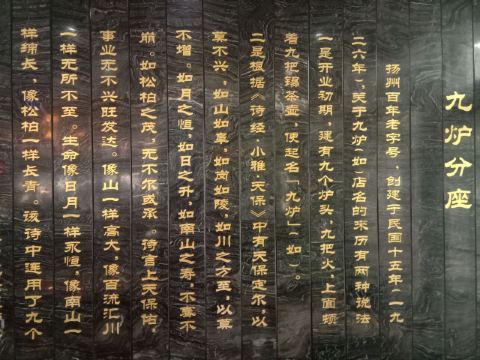 九炉分座
扬州百年老字号，创建于民国十五年（一九
二六年），关于九炉（如）店名的来历有两种说法
一是开业初期，建有九个炉头，九把火，上面顿
着九把锡茶壶，便起名「九炉」（如）。
二是根据《诗经·小雅·天保》中有天保定尔，以
莫不兴。如山如阜，如岗如陵，如川之方至，以莫
不增。如月之恒，如日之升，如南山之寿，不骞不
崩。如松柏之茂，无不尔或承。诗言上天保佑
事业无不兴旺发达。像山一样高大，像百流汇川
一样无所不至。生命像日月一样永恒，像南山一
样绵长，像松柏一样长青。该诗中连用了九个